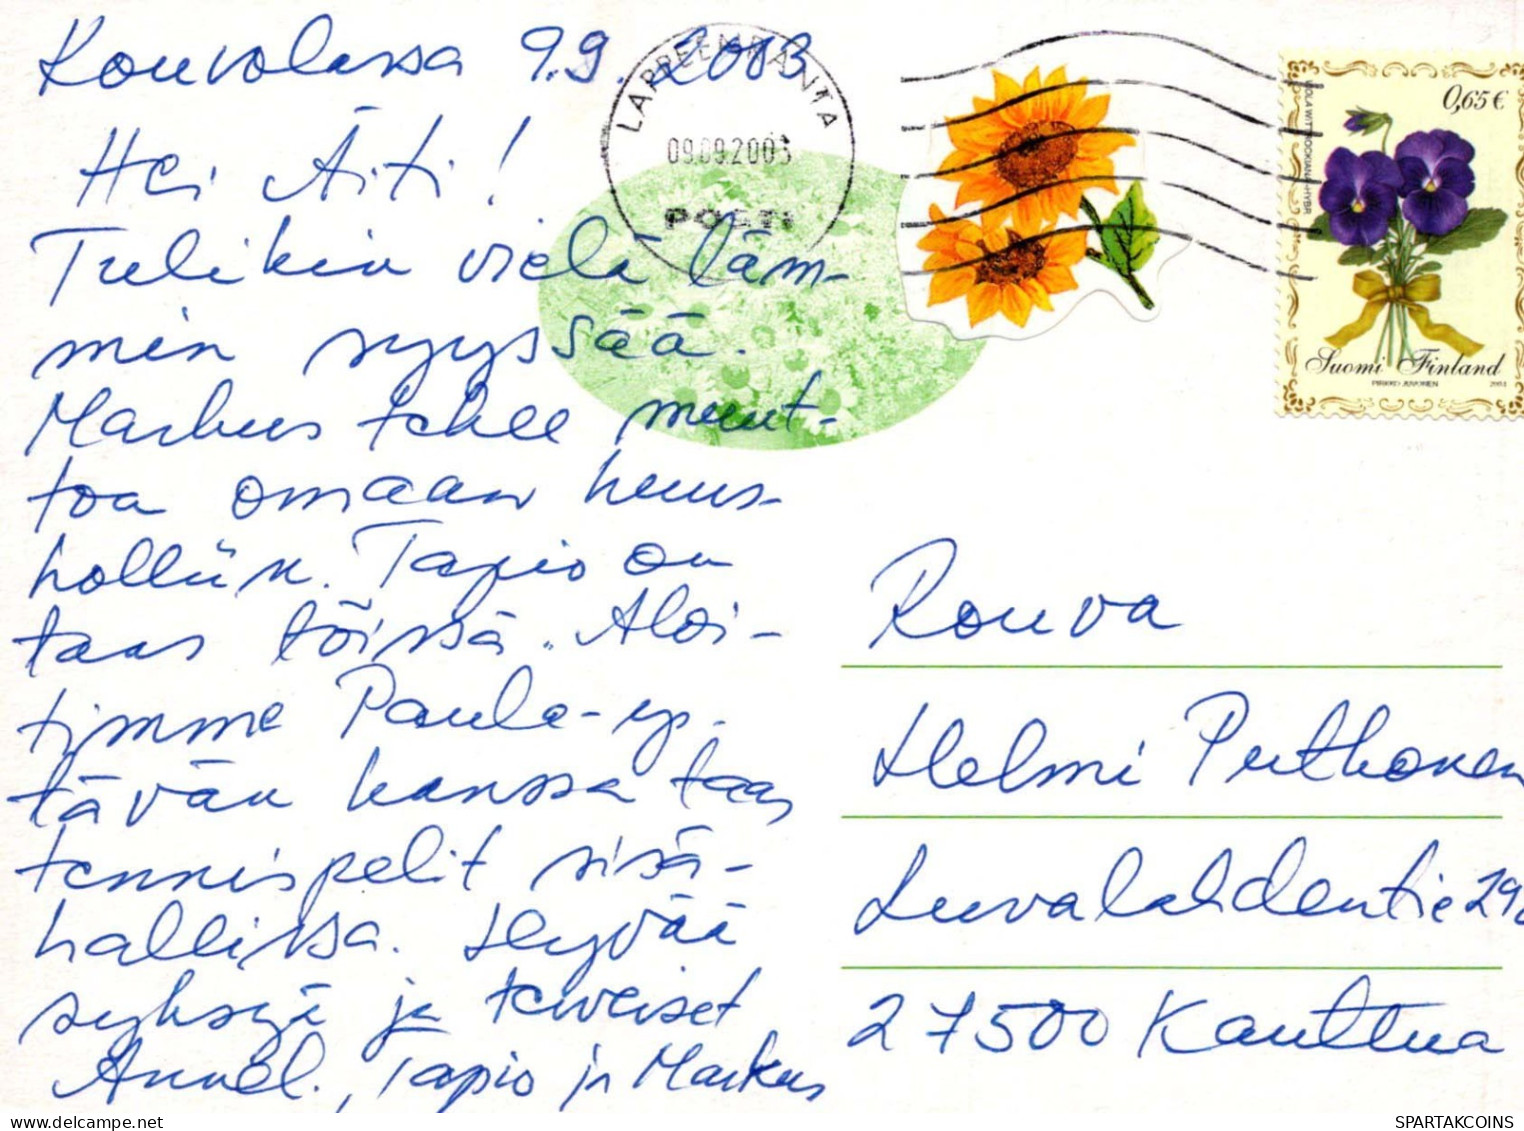 Kouvolassa 9.9. 2003
Hei Äiti!
Tulikin vielä läm-
min syyssää.
Markus tekee muut-
toa omaan huus-
holliin. Tapio on
taas töissä. Aloi-
timme Paula-ys-
tävän kanssa taas
tennispelit sisä-
hallissa. Hyvää
syksyä ja terveiset
Annel., Tapio ja Markus
LAPPEENRANTA
09.09.2003
POSTI
0,65 €
VIOLA WITTROCKIANA-HYBR
Suomi Finland
PIRKKO JUVONEN
Rouva
Helmi Puthonen
Luvalahdentie 29
27500 Kauttua
SPARTAKCOINS